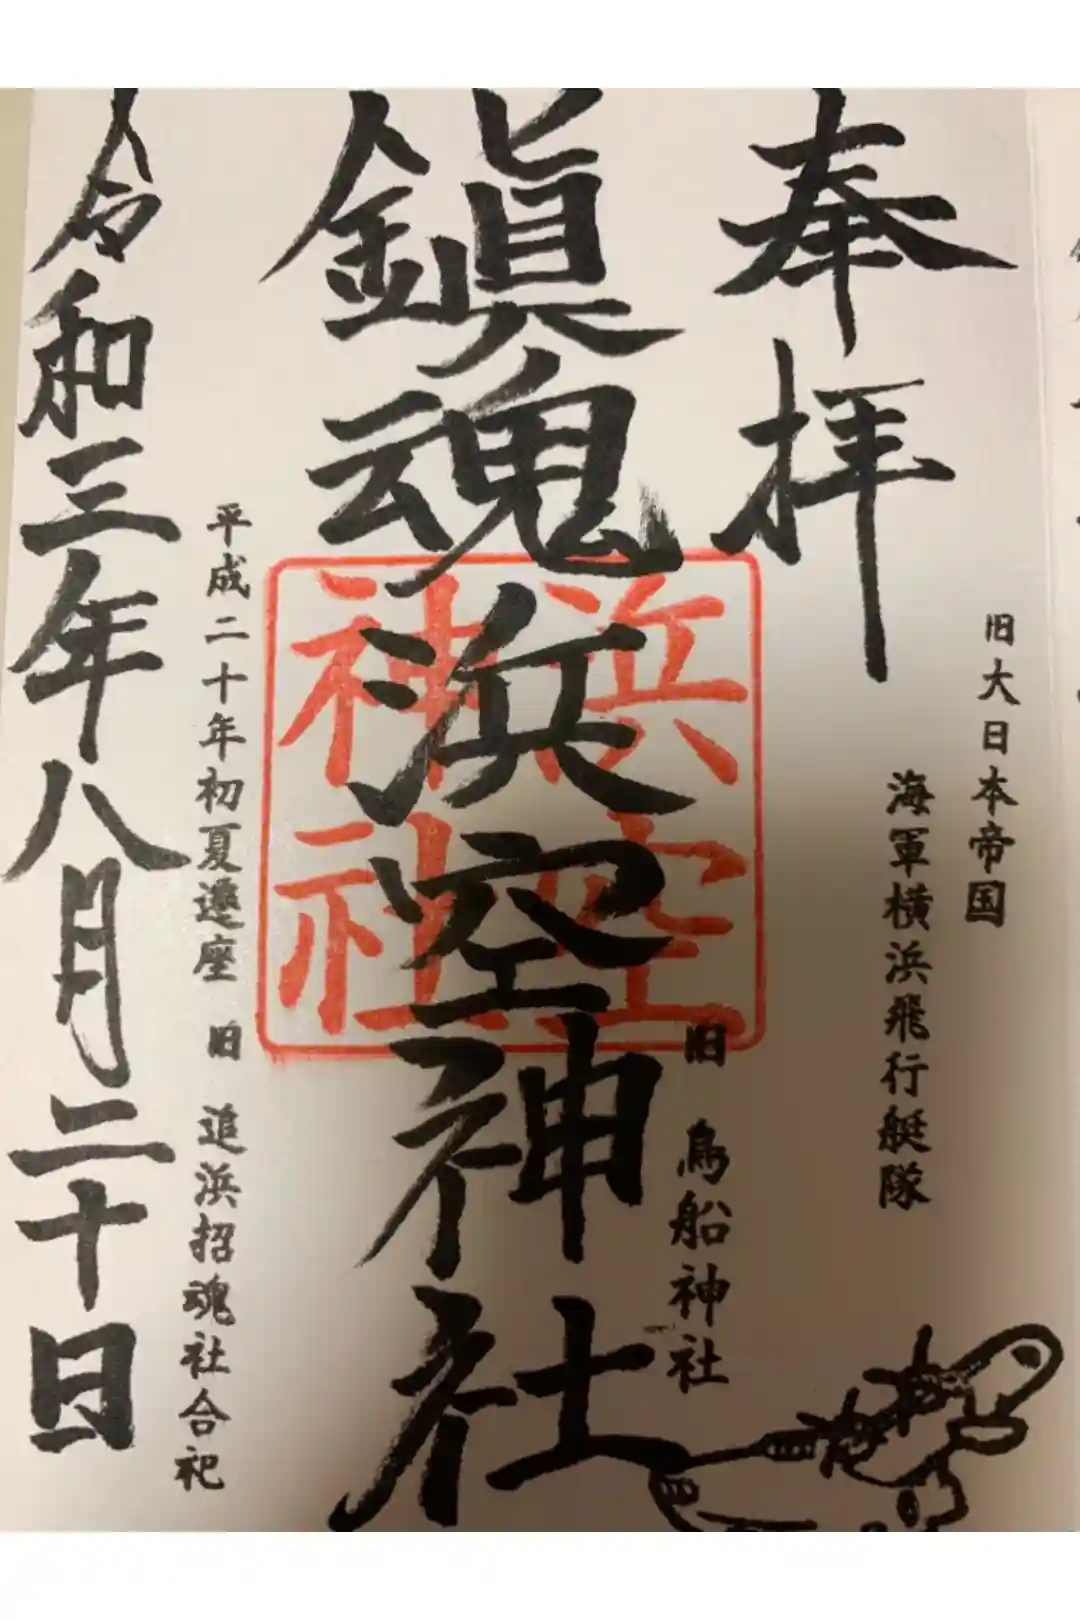 奉拝
旧大日本帝国
海軍横浜飛行艇隊
旧 鳥船神社
鎭魂 浜空神社
浜空
神社
平成二十年初夏遷座 旧 追浜招魂社合祀
令和三年八月二十日